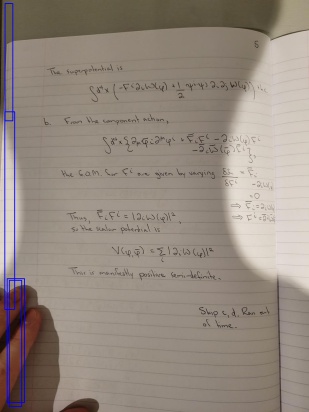 5
The superpotential is
∫d⁴x (-Fⁱ∂ᵢW(φ) + 1/2 ψⁱψʲ ∂ᵢ∂ⱼW(φ))
b. From the component action,
∫d⁴x {∂ₘφ̄ᵢ∂ᵐφⁱ + F̄ᵢFⁱ - ∂ᵢW(φ)Fⁱ
- ∂ᵢW̄(φ̄)F̄ⁱ},
the E.O.M. for Fⁱ are given by varying δL/δFⁱ = F̄ᵢ
- ∂ᵢW
= 0
⇒ F̄ᵢ = ∂ᵢW
Thus, F̄ᵢFⁱ = |∂ᵢW(φ)|², ⇒ Fⁱ =
so the scalar potential is
V(φ,φ̄) = Σᵢ |∂ᵢW(φ)|²
This is manifestly positive semi-definite.
Skip c, d. Ran out
of time.